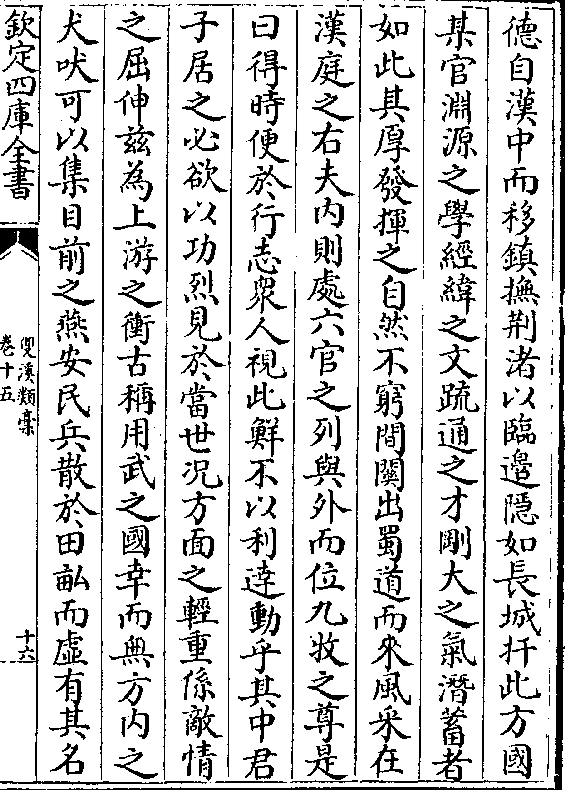 德自漢中而移鎮撫荆渚以臨邉隠如長城扞此方國
某官淵源之學經緯之文疏通之才剛大之氣潛蓄者
如此其厚發揮之自然不窮間關出蜀道而來風采在
漢庭之右夫内則處六官之列與外而位九牧之尊是
曰得時便於行志衆人視此鮮不以利達動乎其中君
子居之必欲以功烈見於當世况方面之輕重係敵情
之屈伸兹為上游之衝古稱用武之國幸而無方内之
犬吠可以集目前之燕安民兵散於田畝而虚有其名
欽定四庫全書
雙溪類槀
卷十五
十六